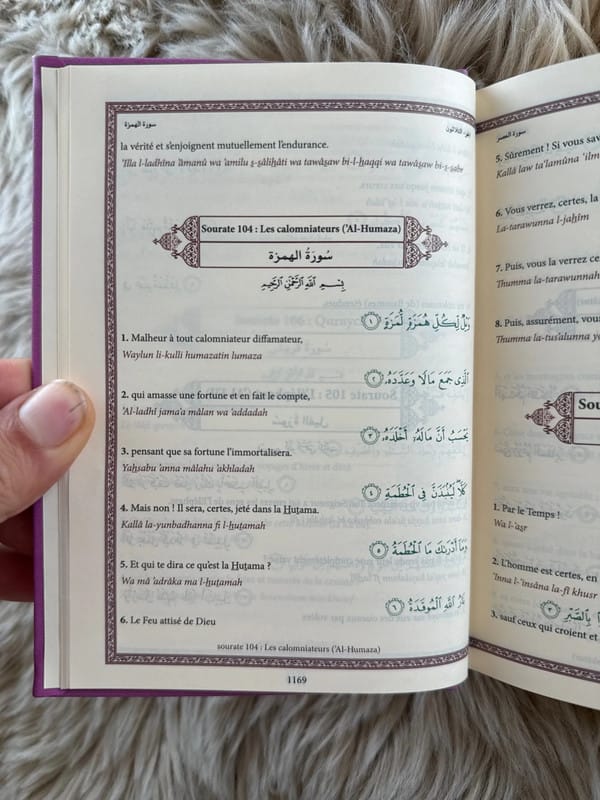 سورة الهمزة
الجزء الثلاثون
la vérité et s'enjoignent mutuellement l'endurance.
'Illa l-ladhîna 'âmanû wa 'amilu ṣ-ṣâliḥâti wa tawâṣaw bi-l-ḥaqqi wa tawâṣaw bi-ṣ-ṣabr
Sourate 104 : Les calomniateurs ('Al-Humaza)
سُورَةُ الهمزة
بِسْمِ ٱللَّهِ ٱلرَّحْمَٰنِ ٱلرَّحِيمِ
وَيْلٌ لِّكُلِّ هُمَزَةٍ لُّمَزَةٍ ١
1. Malheur à tout calomniateur diffamateur,
Waylun li-kulli humazatin lumaza
ٱلَّذِى جَمَعَ مَالًا وَعَدَّدَهُۥ ٢
2. qui amasse une fortune et en fait le compte,
'Al-ladhî jama'a mâlan wa 'addadah
يَحْسَبُ أَنَّ مَالَهُۥٓ أَخْلَدَهُۥ ٣
3. pensant que sa fortune l'immortalisera.
Yaḥsabu 'anna mâlahu 'akhladah
كَلَّا لَيُنۢبَذَنَّ فِى ٱلْحُطَمَةِ ٤
4. Mais non ! Il sera, certes, jeté dans la Ḥuṭama.
Kallâ la-yunbadhanna fî l-ḥuṭamah
وَمَآ أَدْرَىٰكَ مَا ٱلْحُطَمَةُ ٥
5. Et qui te dira ce qu'est la Ḥuṭama ?
Wa mâ 'adrâka ma l-ḥuṭamah
نَارُ ٱللَّهِ ٱلْمُوقَدَةُ ٦
6. Le Feu attisé de Dieu
sourate 104 : Les calomniateurs ('Al-Humaza)
1169
سورة العصر
5. Sûrement ! Si vous sav
Kallâ law ta'lamûna 'ilm
6. Vous verrez, certes, la
La-tarawunna l-jaḥîm
7. Puis, vous la verrez ce
Thumma la-tarawunnah
8. Puis, assurément, vous
Thumma la-tus'alunna yo
Sou
1. Par le Temps !
Wa l-'aṣr
2. L'homme est certes, en
'Inna l-'insâna la-fî khusr
بِٱلصَّبْرِ ٣
3. sauf ceux qui croient et